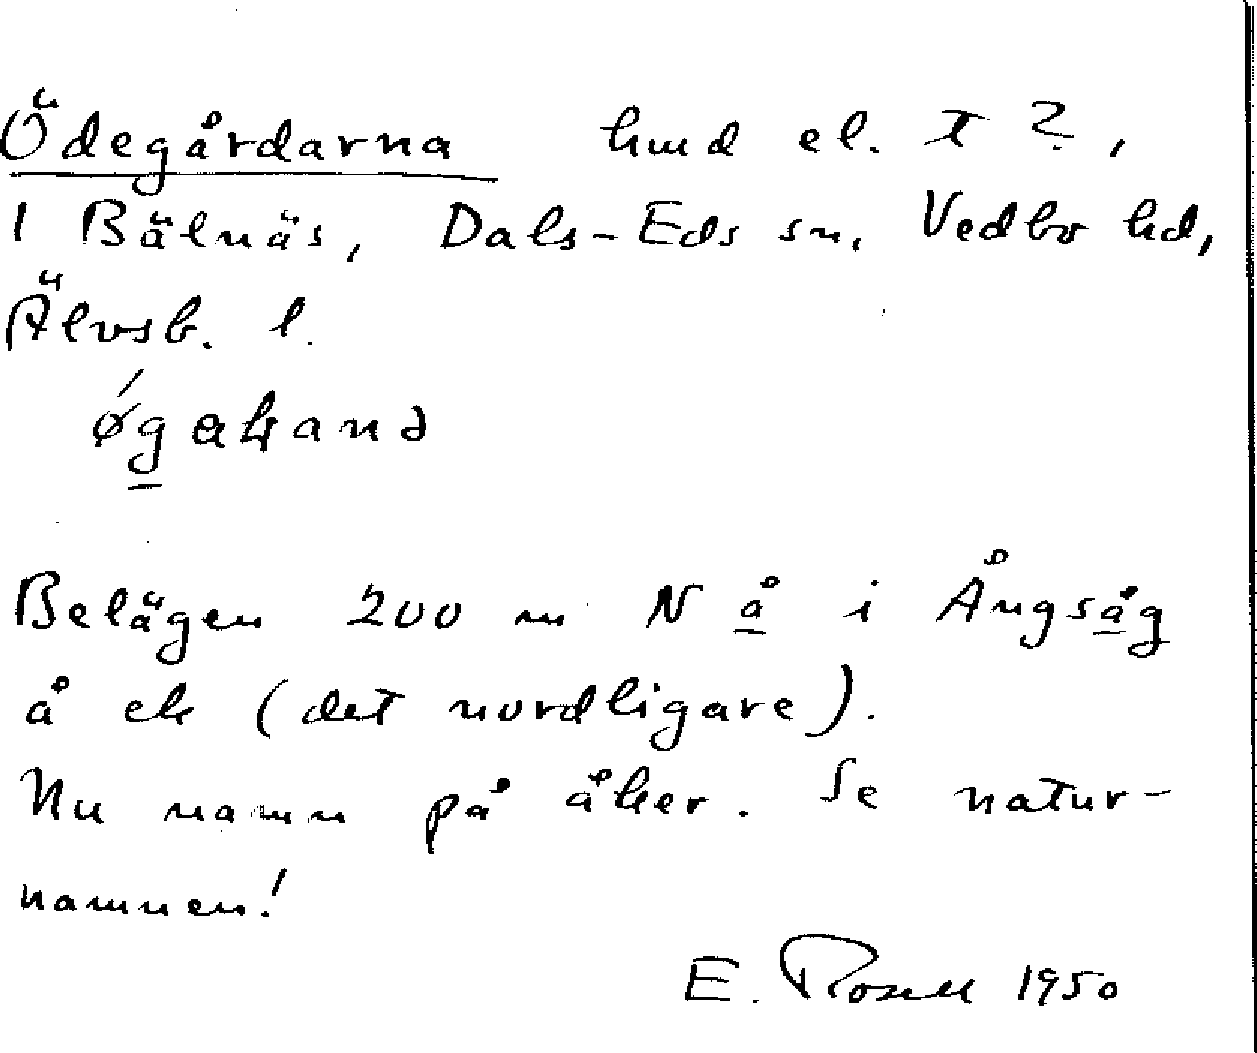 Ödegårdarna hmd el. t ?,
1 Bälnäs, Dals-Eds sn, Vedbo hd,
Älvsb. l.
Belägen 200 m N å i Ångsåg
å ek (det nordligare).
Nu namn på åker. Se natur-
namnen!
E. Rosell 1950